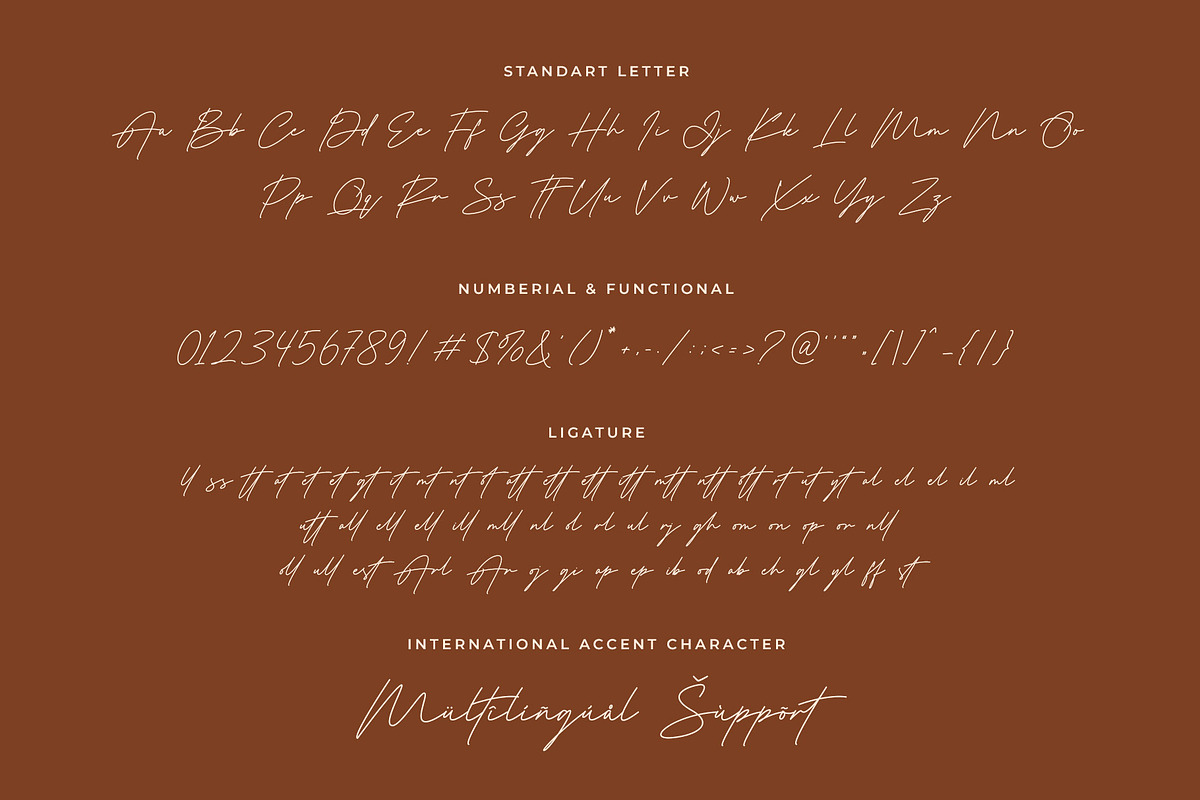 STANDART LETTER
Aa Bb Cc Dd Ee Ff Gg Hh Ii Jj Kk Ll Mm Nn Oo
Pp Qq Rr Ss Tt Uu Vv Ww Xx Yy Zz
NUMBERIAL & FUNCTIONAL
0123456789! # $%& ' ()* +,-./ : ; < = > ? @ ‘ ’ “ ” „ [\] ^ _ { | }
LIGATURE
ss tt at ct et gt it mt nt ot att ctt ett itt mtt ntt ott rt ut yt al cl el il ml
utt all cll ell ill mll nl ol rl ul rj gh om on op or nll
oll ull est Art Ar oj gi ap ep ib od ab ch gl yl ff st
INTERNATIONAL ACCENT CHARACTER
Mültîlíñgúål Šùppõrt